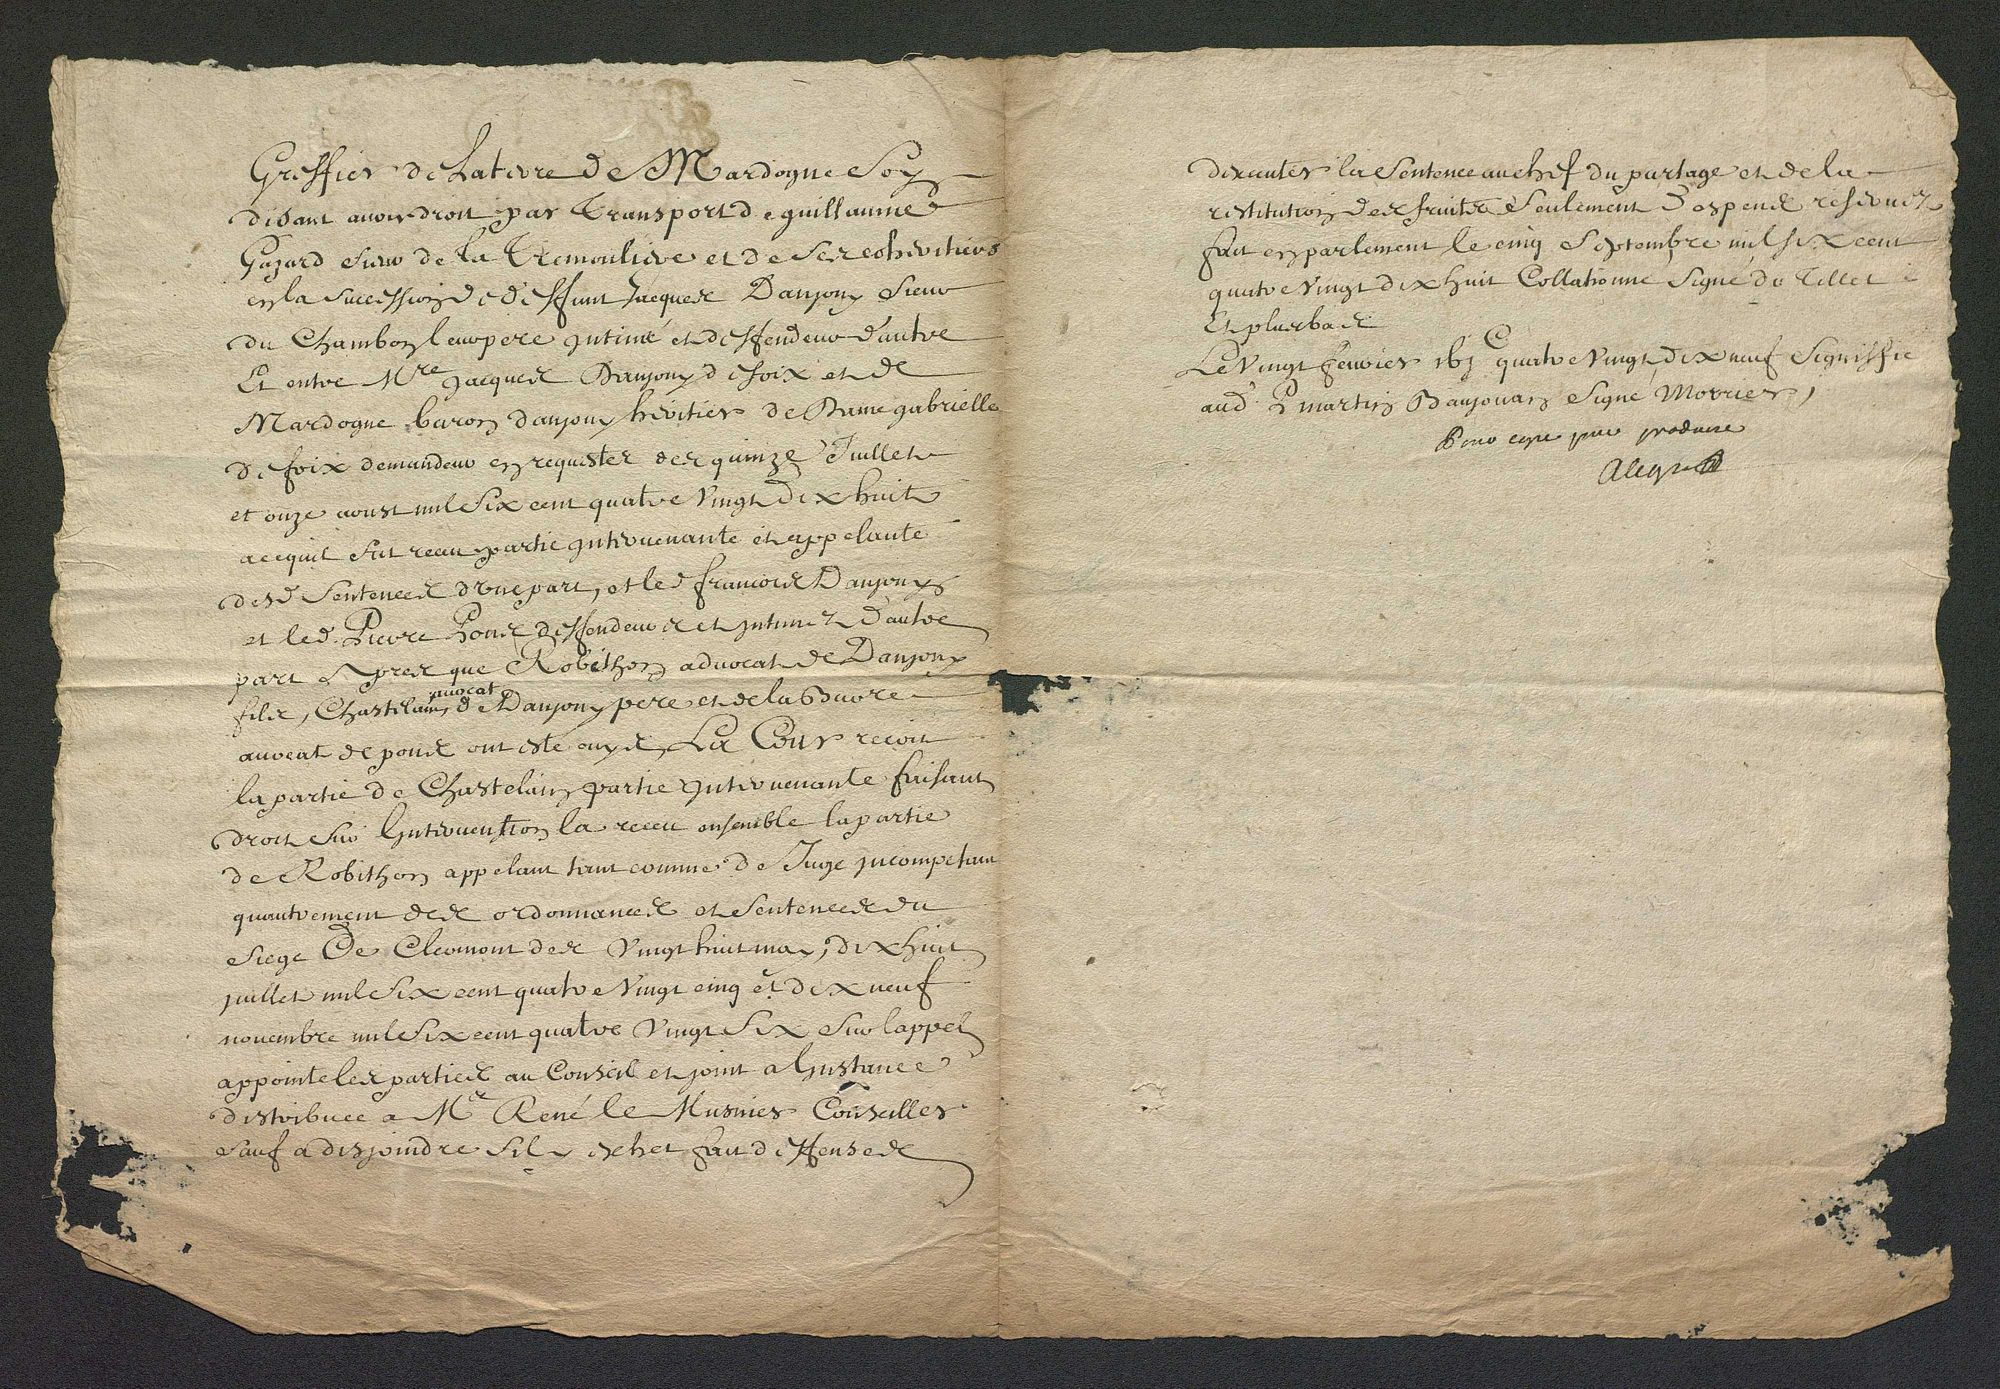 Greffier de Laterre de Mardogne Soy
disant avoir droit par transport de guillaume
Gazard sieur de la Tremouliere et de ses coheritiers
en la succession de deffunt Jacques Danjony sieur
du Chambon leur pere jntimé et deffendeur d'autre
Et entre Mre Jacques Danjony de foix et de
Mardogne baron danjony heritier de Dame gabrielle
de foix demandeur en requestes des quinze Juillet
et onze aoust mil six cent quatre vingt dix huit
acequil fut receu partie jntervenante et appelante
desd sentences d'une part, et led francois Danjony
et led. Pierre Pons deffendeurs et jntimez d'autre
part Apres que Robithon advocat de Danjony
fils, Chastelain avocat de Danjony pere et de la
auvocat de pons ont este ouys, La Cour recoit
la partie de Chastelain partie jntervenante faisant
droit sur Lintervention la receu ensemble la partie
de Robithon appelant tant comme de Juge jncompetant
quautrement des ordonnances et sentences du
siege De Clermont des vingt huit may, dix huit
juillet mil six cent quatre vingt cinq et dix neuf
novembre mil six cent quatre vingt six sur lappel
appointe les parties au Conseil et joint a linstance
distribuee a Me René le Musnier Conseiller
sauf a disjoindre sil y echet fait deffenses
dexecuter la sentence au chef du partage et de la
restitution des fruits seulement despens reservez
fait en parlement le cinq septembre mil six cent
quatre vingt dix huit Collationné signé du Tillet
Et plus bas
Le vingt feuvrier 16j C quatre vingt dix neuf signiffie
aud P martin Danjouan signé Morrier,
Pour copie pour produire